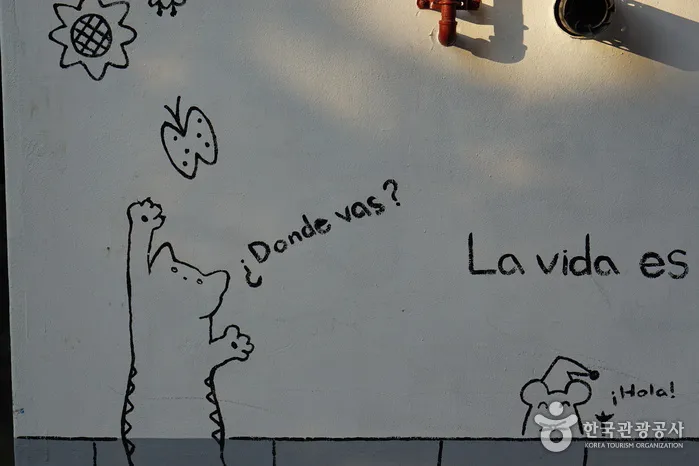 ¿Donde vas?
La vida es
¡Hola!
한국관광공사
KOREA TOURISM ORGANIZATION